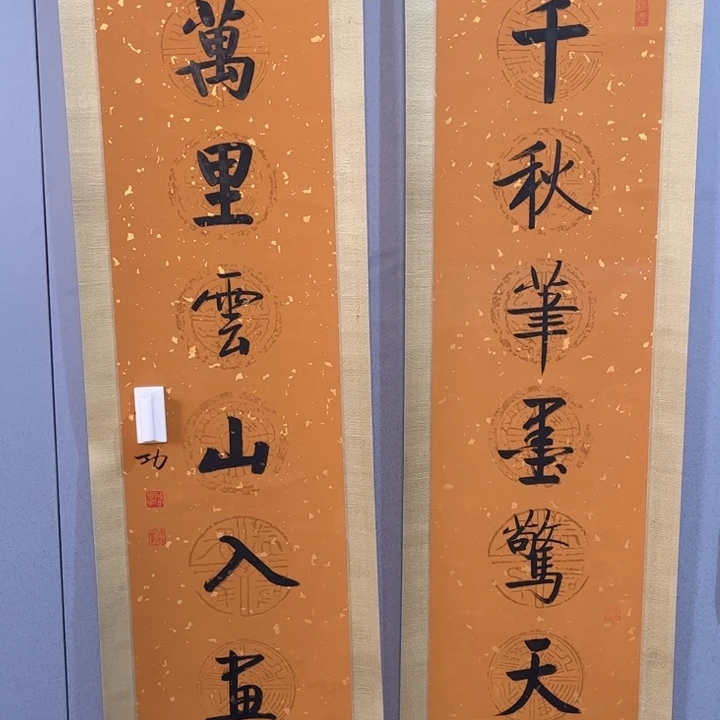 千秋筆墨驚天
萬里雲山入畫
功